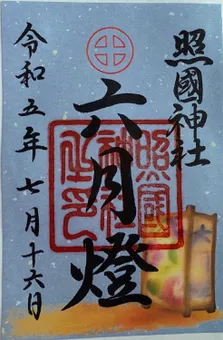 照國神社
六月燈
照國神社之印
令和五年七月十六日